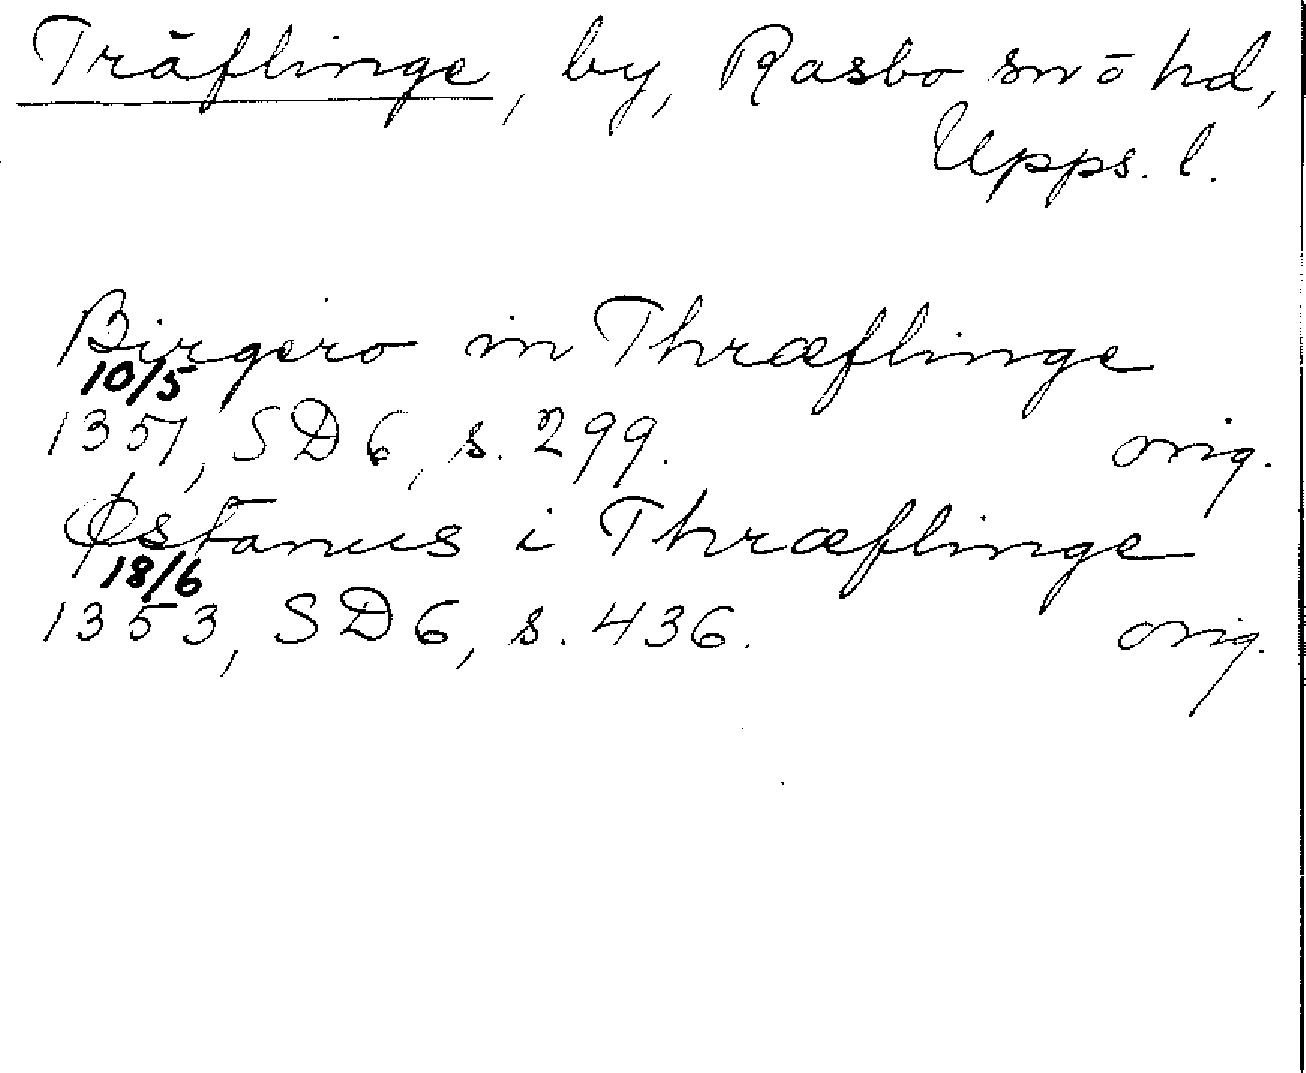 Träflinge, by, Rasbo sn o hd,
Upps. l.
Birgero in Thræflinge
10/5
1351, SD 6, s. 299. orig.
Østanus i Thræflinge
18/6
1353, SD 6, s. 436. orig.